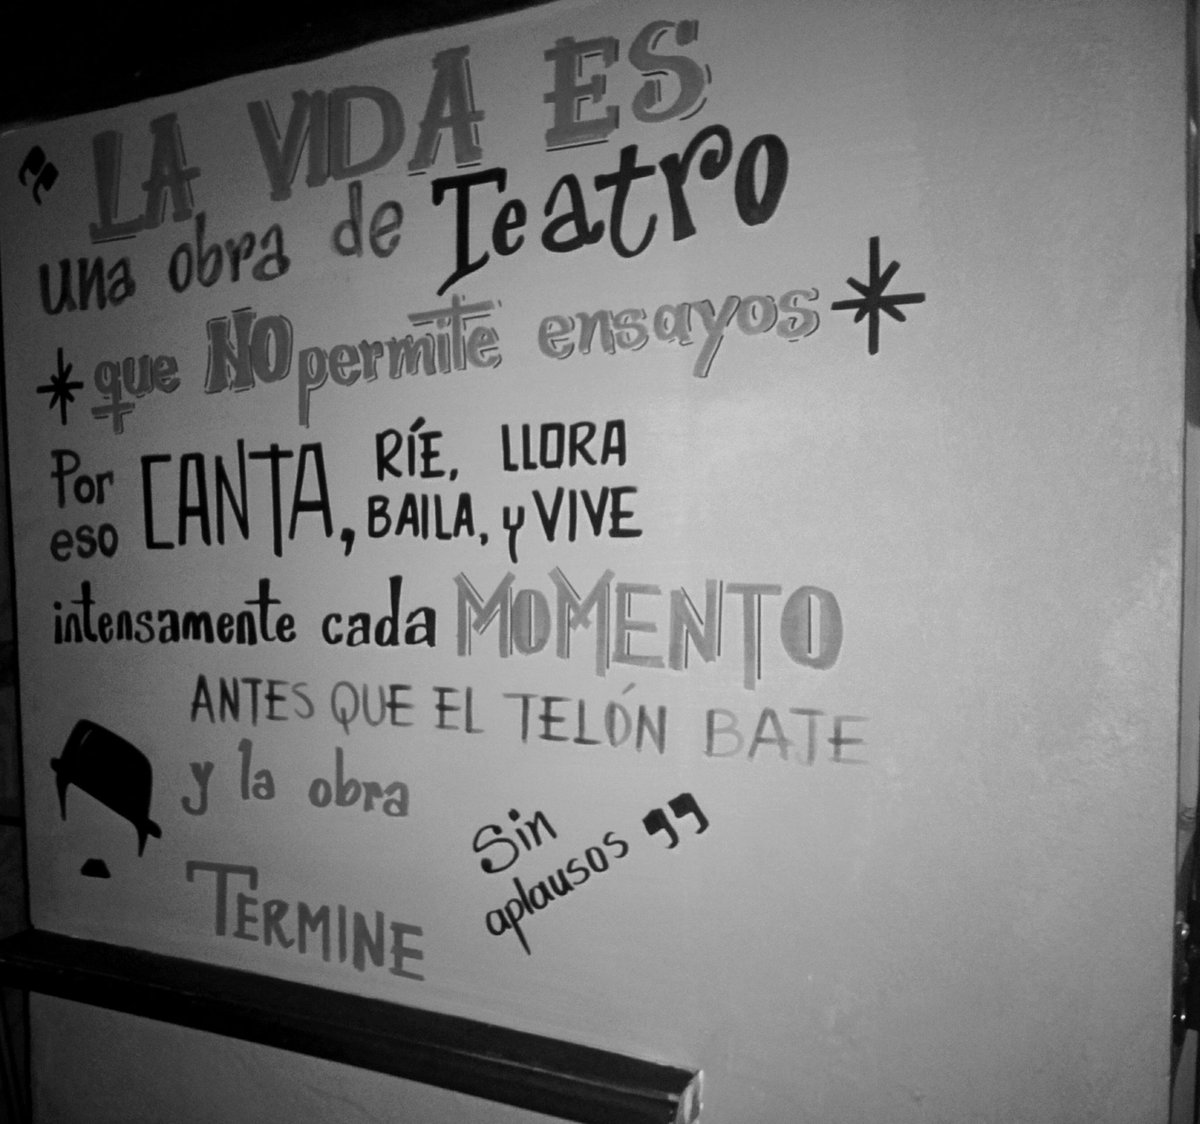 “LA VIDA ES
una obra de Teatro
* que NO permite ensayos *
Por eso CANTA, RÍE, LLORA
BAILA, y VIVE
intensamente cada MOMENTO
ANTES QUE EL TELÓN BAJE
y la obra
TERMINE
Sin
aplausos”